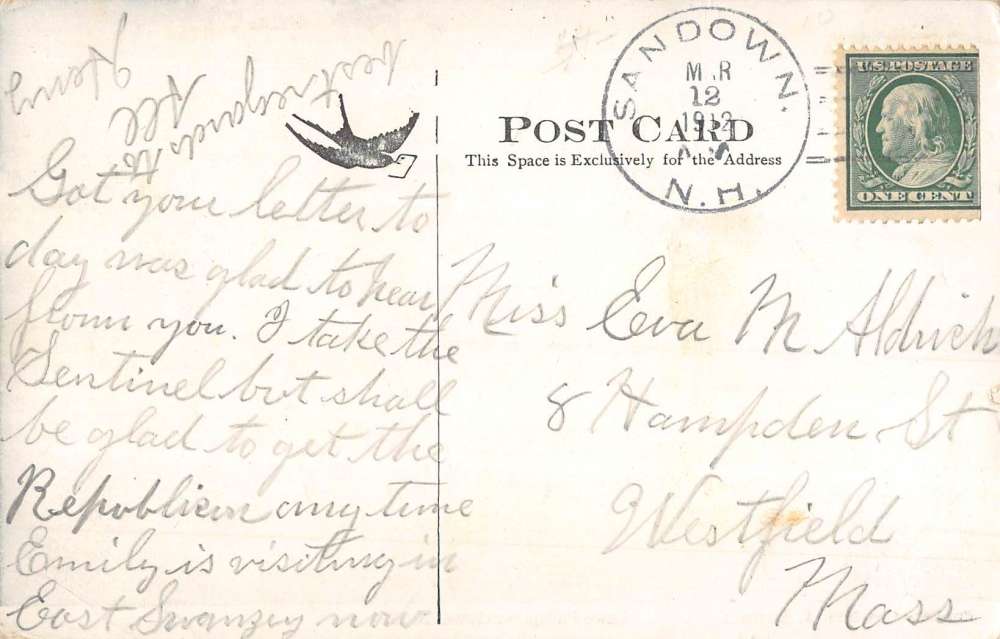 Got your letter to
day was glad to hear
from you. I take the
Sentinel but shall
be glad to get the
Republican any time
Emily is visiting in
East Swanzey now
best
regards to
All
Henry
POST CARD
This Space is Exclusively for the Address
SANDOWN.
MAR
12
1912
N.H.
U.S. POSTAGE
ONE CENT
Miss Eva M Aldrich
8 Hampden St
Westfield
Mass